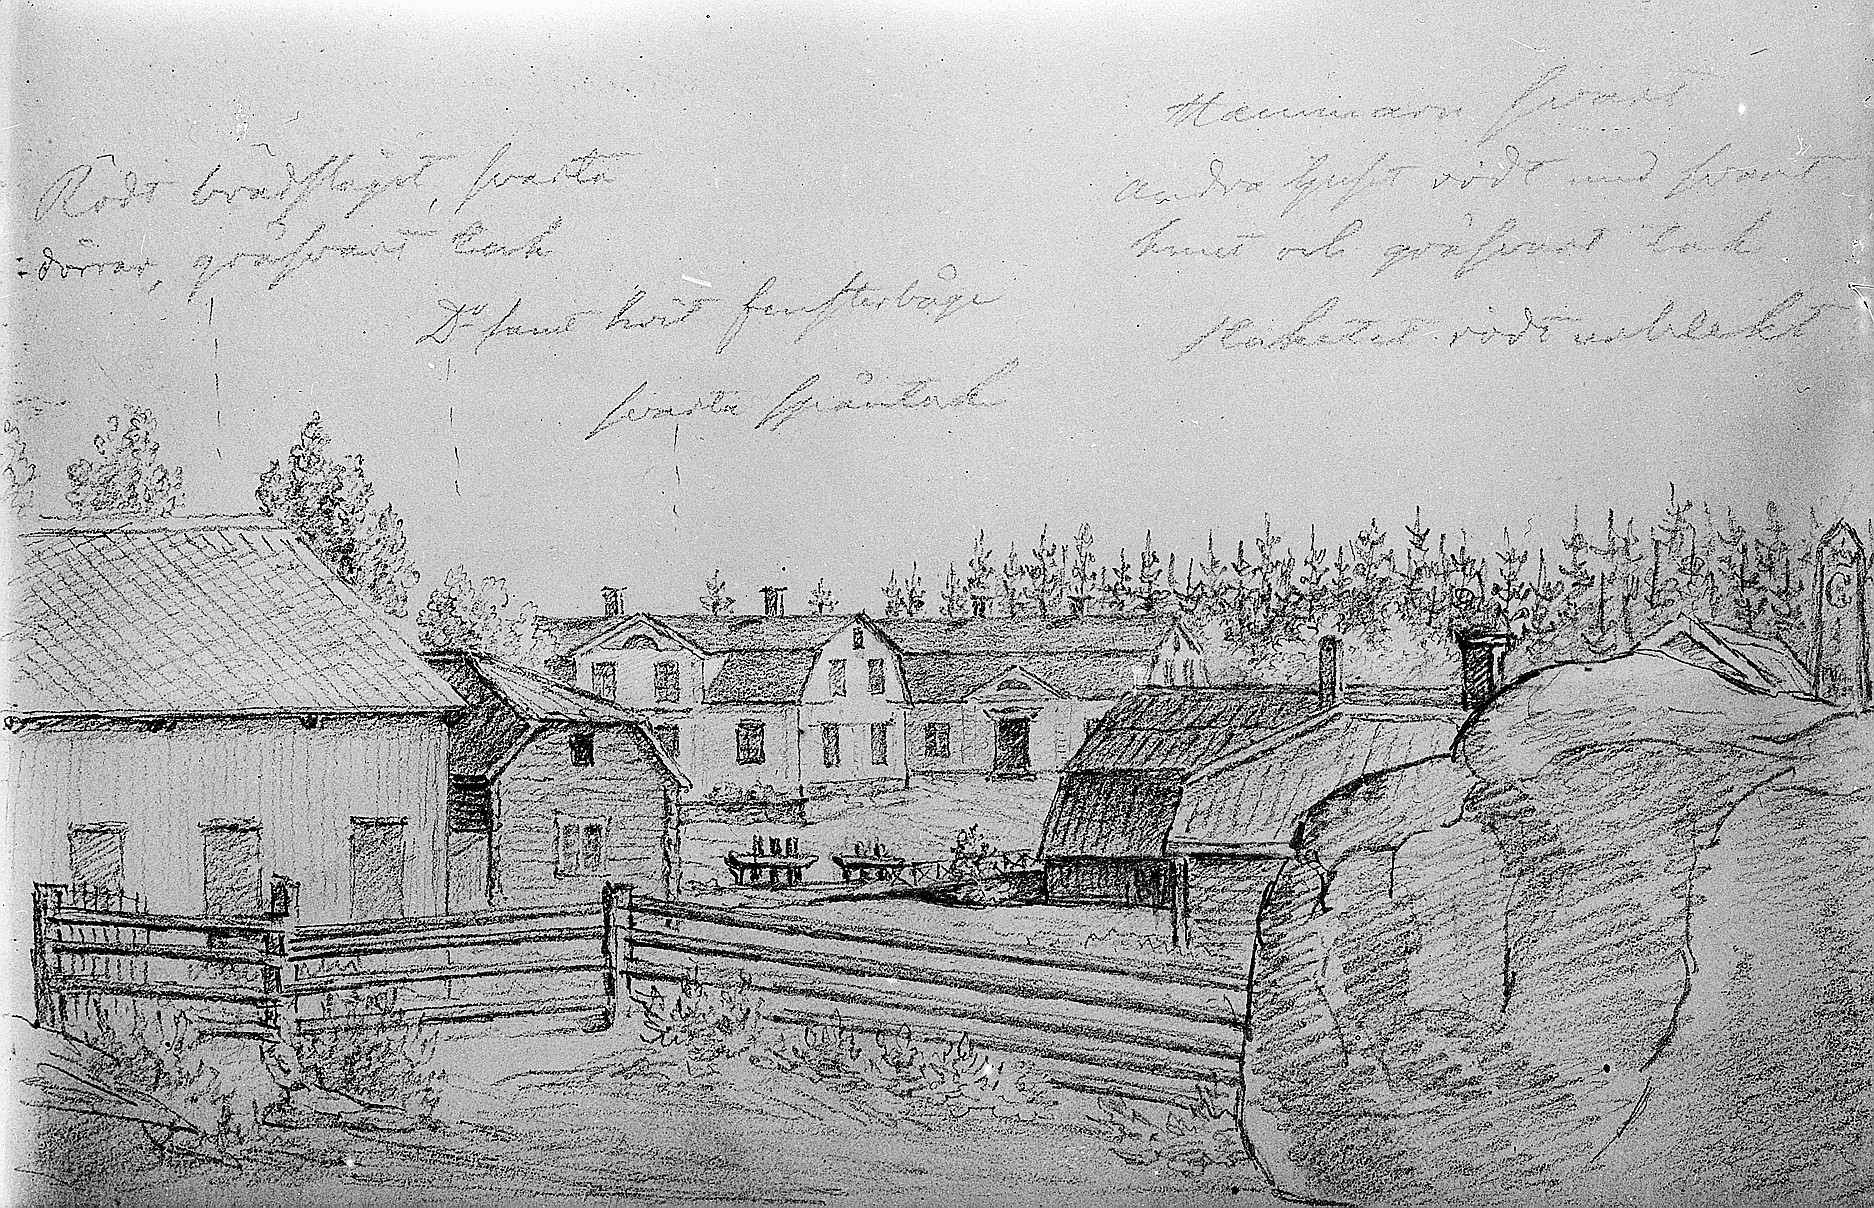 Rödt brädslaget, svarta
dörrar, gråsvart tak
Do samt hvit fensterbåge
svarta spåntak
svart
andra ljust rödt med svart
knut och gråsvart tak
staketet rödt urblekt